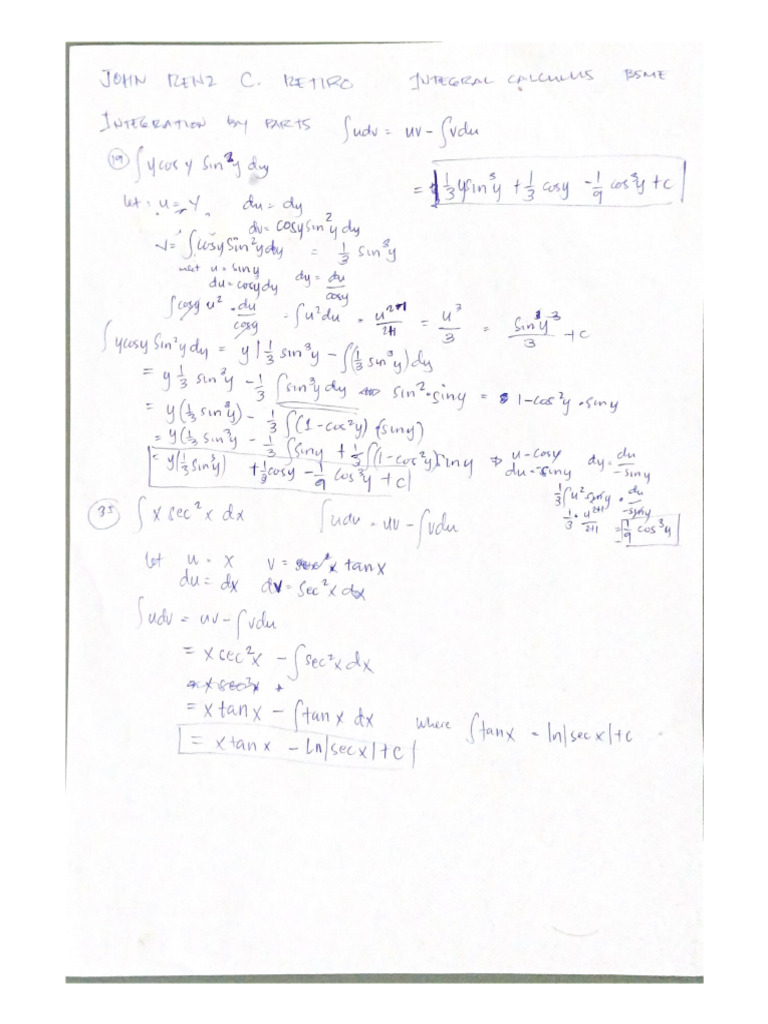 JOHN RENZ C. RETIRO INTEGRAL CALCULUS BSME
INTEGRATION BY PARTS ∫udv = uv - ∫vdu
(19) ∫ y cos y sin²y dy
= 1/3 y sin³y + 1/3 cos y - 1/9 cos³y + c
let: u = y du = dy
dv = cosy sin²y dy
v = ∫ cosy sin²y dy = 1/3 sin³y
let u = siny dy = du/cosy
du = cosy dy
∫ cosy u² · du/cosy = ∫u²du = u²⁺¹/2+1 = u³/3 = sin y³/3 + c
∫ y cosy sin²y dy = y 1/3 sin³y - ∫(1/3 sin³y) dy
= y 1/3 sin³y - 1/3 ∫ sin³y dy ⇔ sin²·siny = 1-cos²y · siny
= y(1/3 sin³y) - 1/3 ∫(1-cos²y) (siny)
= y(1/3 sin³y - 1/3 ∫siny + 1/3 ∫(1-cos²y) siny ⇒ u-cosy dy = du/-siny
du = -siny
= y(1/3 sin³y) + 1/3 cosy - 1/9 cos³y + c
1/3 ∫u² siny · du/-siny
1/3 · u²⁺¹/2+1 = 1/9 cos³y
(35) ∫ x sec²x dx ∫udv = uv - ∫vdu
let u = x v = tanx
du = dx dv = sec²x dx
∫udv = uv - ∫vdu
= x sec²x - ∫sec²x dx
= x tanx - ∫tanx dx where ∫tanx = ln|secx|+c
= x tanx - ln|secx|+c